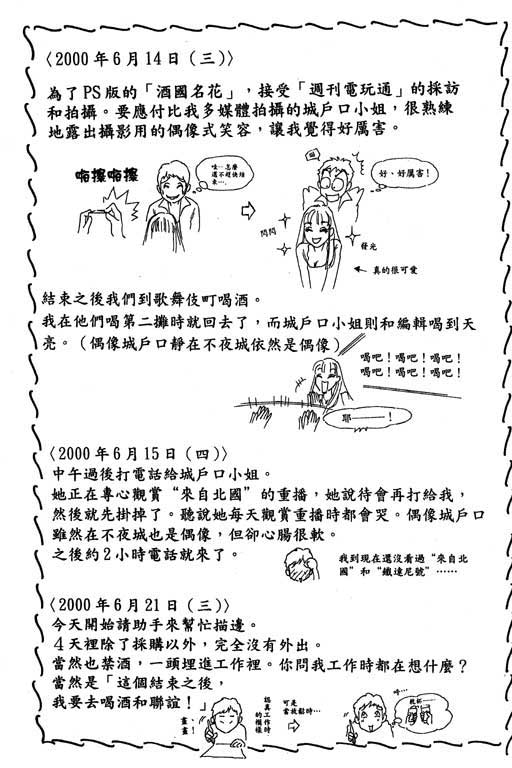 〈2000年6月14日（三）〉
為了PS版的「酒國名花」，接受「週刊電玩通」的採訪
和拍攝。要應付比我多媒體拍攝的城戶口小姐，很熟練
地露出攝影用的偶像式笑容，讓我覺得好厲害。
啪擦啪擦
哇…怎麼
還不趕快結
束…
好、好厲害！
閃閃
發光
真的很可愛
結束之後我們到歌舞伎町喝酒。
我在他們喝第二攤時就回去了，而城戶口小姐則和編輯喝到天
亮。（偶像城戶口靜在不夜城依然是偶像）
喝吧！喝吧！喝吧！
喝吧！喝吧！喝吧！
耶———！
〈2000年6月15日（四）〉
中午過後打電話給城戶口小姐。
她正在專心觀賞“來自北國”的重播，她說待會再打給我，
然後就先掛掉了。聽說她每天觀賞重播時都會哭。偶像城戶口
雖然在不夜城也是偶像，但卻心腸很軟。
之後約2小時電話就來了。
我到現在還沒看過“來自北
國”和“鐵達尼號”……
〈2000年6月21日（三）〉
今天開始請助手來幫忙描邊。
4天裡除了採購以外，完全沒有外出。
當然也禁酒，一頭埋進工作裡。你問我工作時都在想什麼？
當然是「這個結束之後，
我要去喝酒和聯誼！」
畫、
畫！
認真工作時
的模樣
可是
當放鬆時…
乾杯